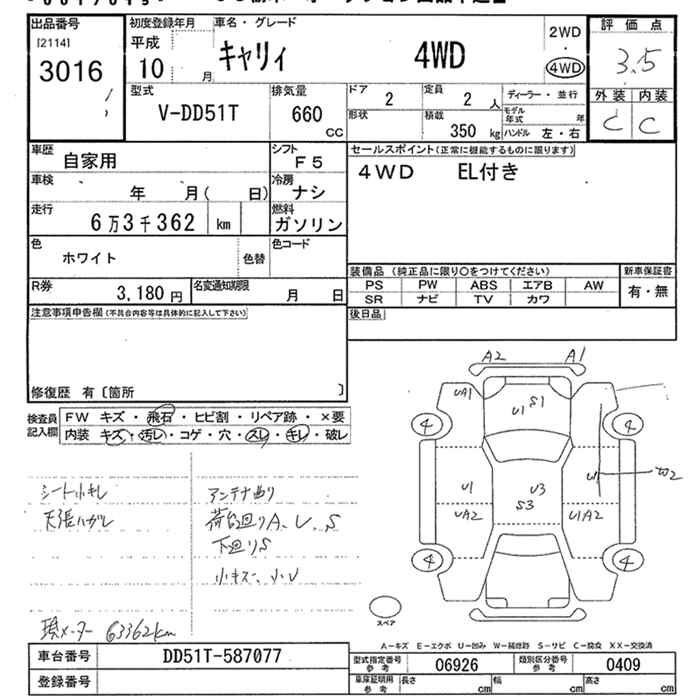 出品番号
[2114]
3016
初度登録年月
平成
10 月
車名・グレード
キャリィ 4WD
2WD
・
4WD
評価点
3.5
外装 内装
C C
型式
V-DD51T
排気量
660
CC
ドア
2
定員
2 人
ディーラー・並行
形状
積載
350 kg
モデル年式 年
ハンドル 左・右
車歴
自家用
シフト
F5
車検
年 月( 日)
冷房
ナシ
走行
6万3千362 km
燃料
ガソリン
色
ホワイト
色替
色コード
R券
3,180 円
名変通知期限
月 日
セールスポイント(正常に機能するものに限ります)
4WD EL付き
装備品 (純正品に限り○をつけてください)
新車保証書
PS PW ABS エアB AW
有・無
SR ナビ TV カワ
後日品
注意事項申告欄(不具合内容等は具体的に記入して下さい)
修復歴 有〔箇所 〕
検査員
記入欄
FW キズ・飛石・ヒビ割・リペア跡・×要
内装 キズ・汚レ・コゲ・穴・スレ・キレ・破レ
シート小キレ
天張ハガレ
アンテナ曲り
荷台廻りA、U、S
下廻りS
小キズ、小U
現メーター 63362km
A2 A1
UA1
U1 S1
4 4
U1
U3
S3
U1
UA2
U1A2
4 4
スペア
A-キズ E-エクボ U-凹み W-補修跡 S-サビ C-腐食 XX-交換済
車台番号
DD51T-587077
登録番号
型式指定番号
参考
06926
類別区分番号
参考
0409
車庫証明用
参考
長さ cm 幅 cm 高さ cm